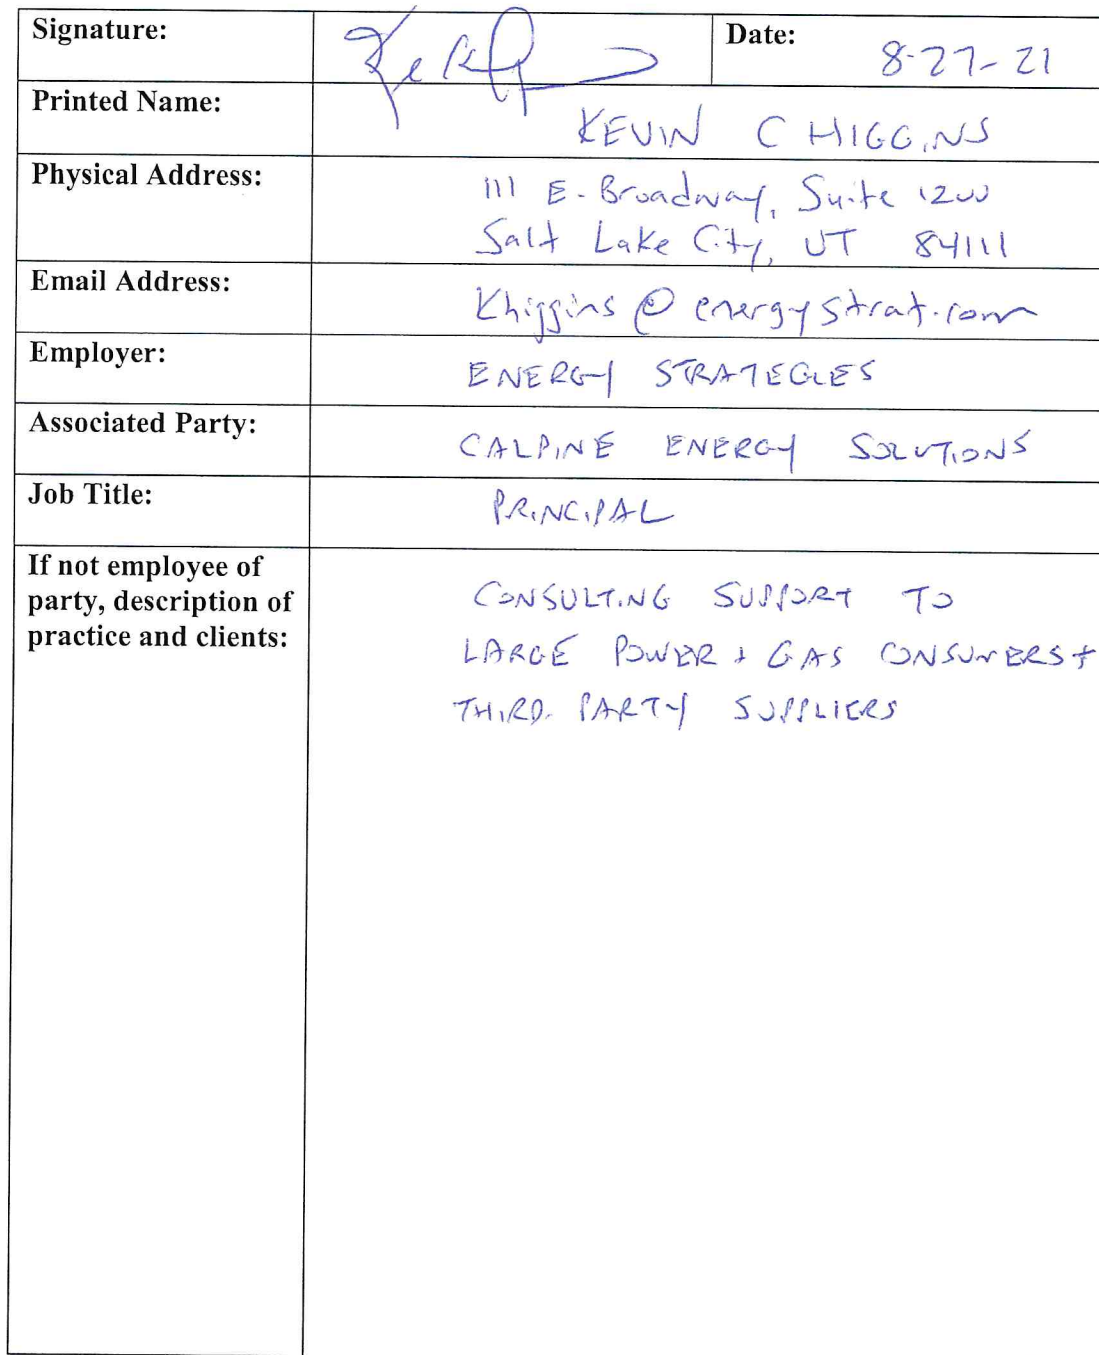 Signature:
Date: 8-27-21
Printed Name: KEVIN C HIGGINS
Physical Address: 111 E. Broadway, Suite 1200
Salt Lake City, UT 84111
Email Address: Khiggins@energystrat.com
Employer: ENERGY STRATEGIES
Associated Party: CALPINE ENERGY SOLUTIONS
Job Title: PRINCIPAL
If not employee of
party, description of
practice and clients:
CONSULTING SUPPORT TO
LARGE POWER + GAS CONSUMERS +
THIRD-PARTY SUPPLIERS